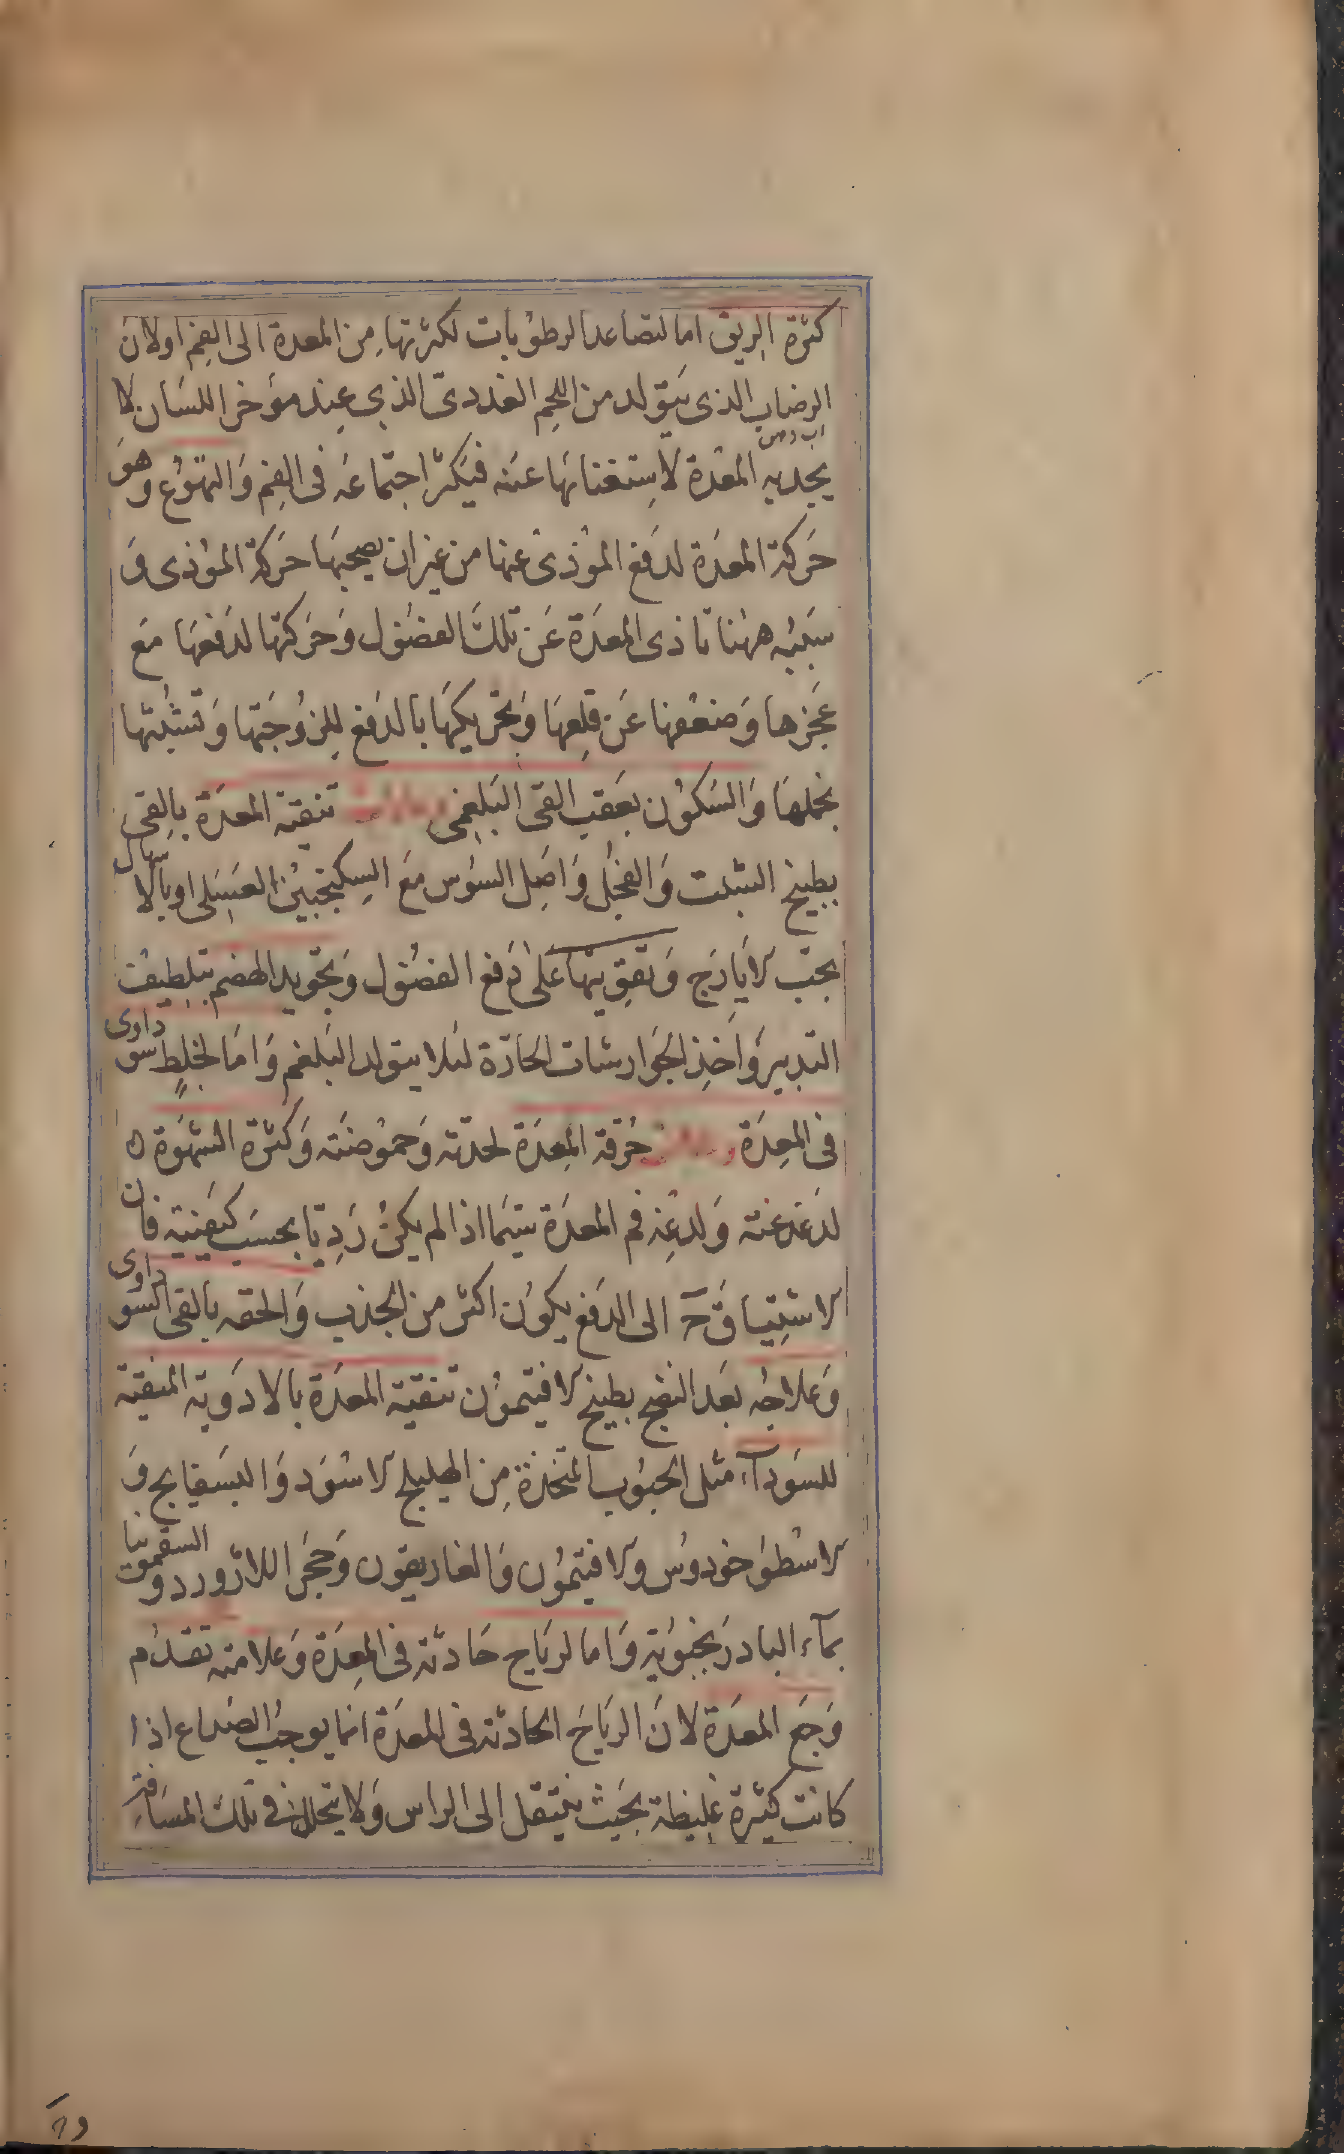 كثرة الريق اما لتصاعد الرطوبات لكثرتها من المعدة الى الفم او لان
الرضاب الذى يتولد من اللحم الغددىّ الذي عند مؤخر اللسان لا
اب دهن
يجذبه المعدة لاستغنائها عنه فيكثر اجتماعه فى الفم والتهوّع وهو
حركة المعدة لدفع المؤذى عنها من غير ان يصحبها حركة المؤذى و
سببه ههنا تاذى المعدة عن تلك الفضول وحركتها لدفعها مع
عجزها وضعفها عن قلعها وتحريكها بالدفع للزوجتها وتشبثها
بخملها والسكون بعقب القى البلغمى وعلاجه تنقية المعدة بالقى
بطبيخ الشبت والفجل واصل السوس مع السكنجبين العسلى او بالاسهال
بحب الايارج وتقويتها على دفع الفضول وتجويد الهضم بتلطيف
التدبير واخذ الجوارشات الحادّة لئلا يتولد البلغم واما لخلط سوداوى
فى المعدة وعلامته حرقة المعدة لحدته وحموضته وكثرة الشهوة ه
لدغدغته ولدغه فم المعدة سيّما اذا لم يكن رديّا بحسب كيفيته فان
الاشتياق ح الى الدفع يكون اكثر من الجذب والخفه بالقى السوداوى
وعلاجه بعد النضج بطبيخ الافتيمون تنقية المعدة بالادوية المنقية
للسوداء مثل الحبوب المتخذة من الهليلج الاسود والبسفايج و
الاسطوخودوس والافتيمون والغاريقون وحجر اللازورد والسقمونيا
بماء البادرنجبوية واما لرياح حادثة فى المعدة وعلامته تقدّم
وجع المعدة لان الرياح الحادثة فى المعدة انما يوجب الصداع اذا
كانت كثيرة غليظة بحيث ينتقل الى الراس ولا يتحلل فى تلك المسافة